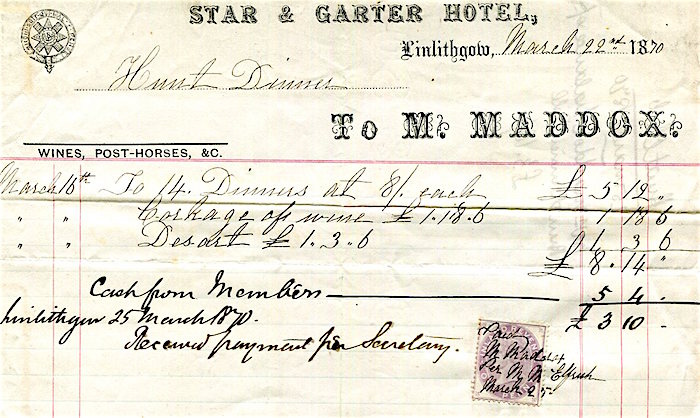 STAR & GARTER HOTEL,
Linlithgow, March 22nd 1870
Hunt Dinner
TO M. MADDOX.
WINES, POST-HORSES, &C.
March 16th To 14. Dinners at 8/. each £ 5 12 "
" " Corkage of wine £1.18.6 1 18 6
" " Desart £1.3.6 1 3 6
£ 8. 14 "
Cash from Members 5 4 .
£ 3 10 -
Linlithgow 25 March 1870.
Received payment for Secretary.
Paid
M Maddox
Per M. M.
March 25